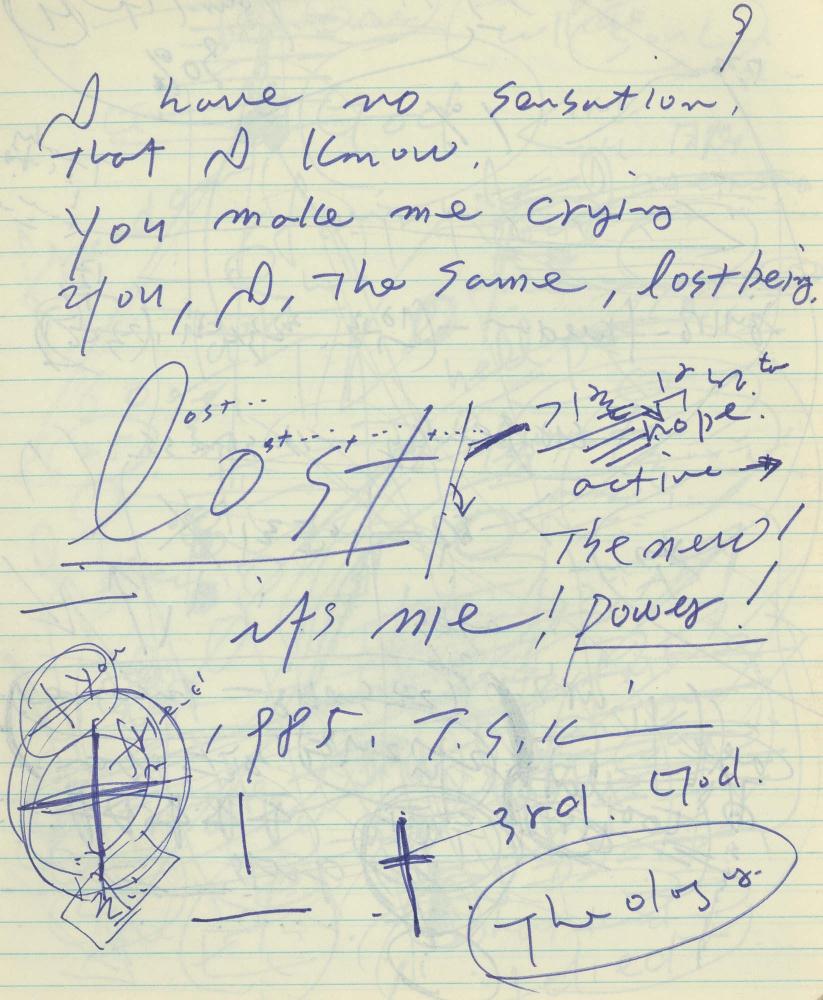 9
I have no sensation,
That I know.
You make me crying
You, I, The same, lost being.
ost..
lost
st....
t....
t....
hope.
active →
The new!
it's me! power!
You
1985. T.S.K
3rd. God.
Theology.